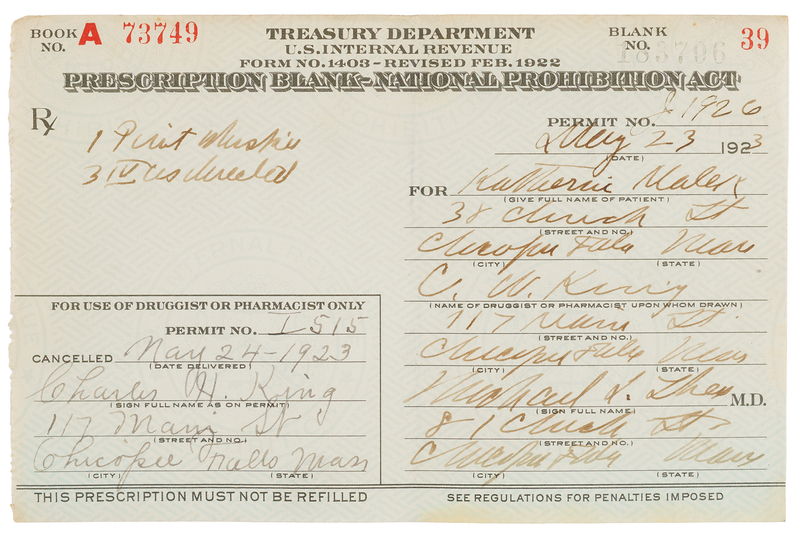 BOOK NO. A 73749
TREASURY DEPARTMENT
U.S. INTERNAL REVENUE
FORM NO. 1403 - REVISED FEB. 1922
BLANK NO. 183706 39
PRESCRIPTION BLANK - NATIONAL PROHIBITION ACT
Rx
1 Pint Whiskie
3 IV as directed
PERMIT NO. J-1926
May 23 1923
(DATE)
FOR Katherine
(GIVE FULL NAME OF PATIENT)
38 Church St
(STREET AND NO.)
Chicopee Falls Mass
(CITY) (STATE)
C. W. King
(NAME OF DRUGGIST OR PHARMACIST UPON WHOM DRAWN)
117 Main St.
(STREET AND NO.)
Chicopee Falls Mass
(CITY) (STATE)
Michael J. M.D.
(SIGN FULL NAME)
81 Church St
(STREET AND NO.)
Chicopee Falls Mass
(CITY) (STATE)
FOR USE OF DRUGGIST OR PHARMACIST ONLY
PERMIT NO. I 515
CANCELLED May 24-1923
(DATE DELIVERED)
Charles W. King
(SIGN FULL NAME AS ON PERMIT)
117 Main St
(STREET AND NO.)
Chicopee Falls Mass
(CITY) (STATE)
THIS PRESCRIPTION MUST NOT BE REFILLED
SEE REGULATIONS FOR PENALTIES IMPOSED